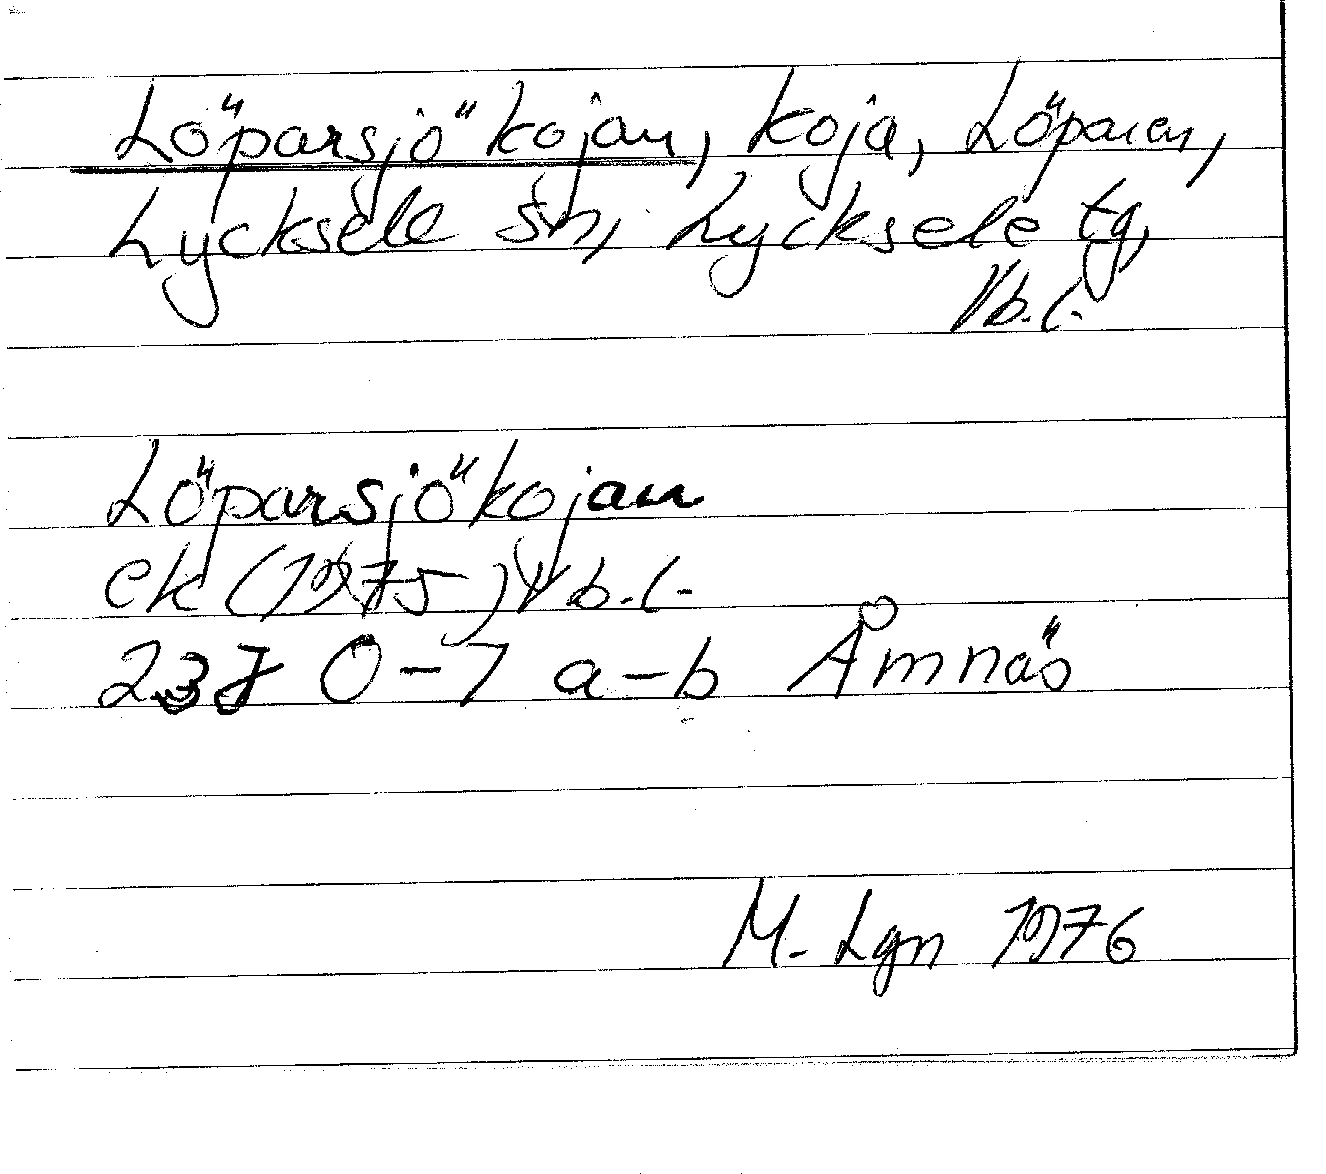 Löparsjökojan, koja, Löparen,
Lycksele sn, Lycksele tg,
Vb.l.
Löparsjökojan
ek (1975) Vb.l.
23J 0-7 a-b Åmnäs
M. Lgn 1976